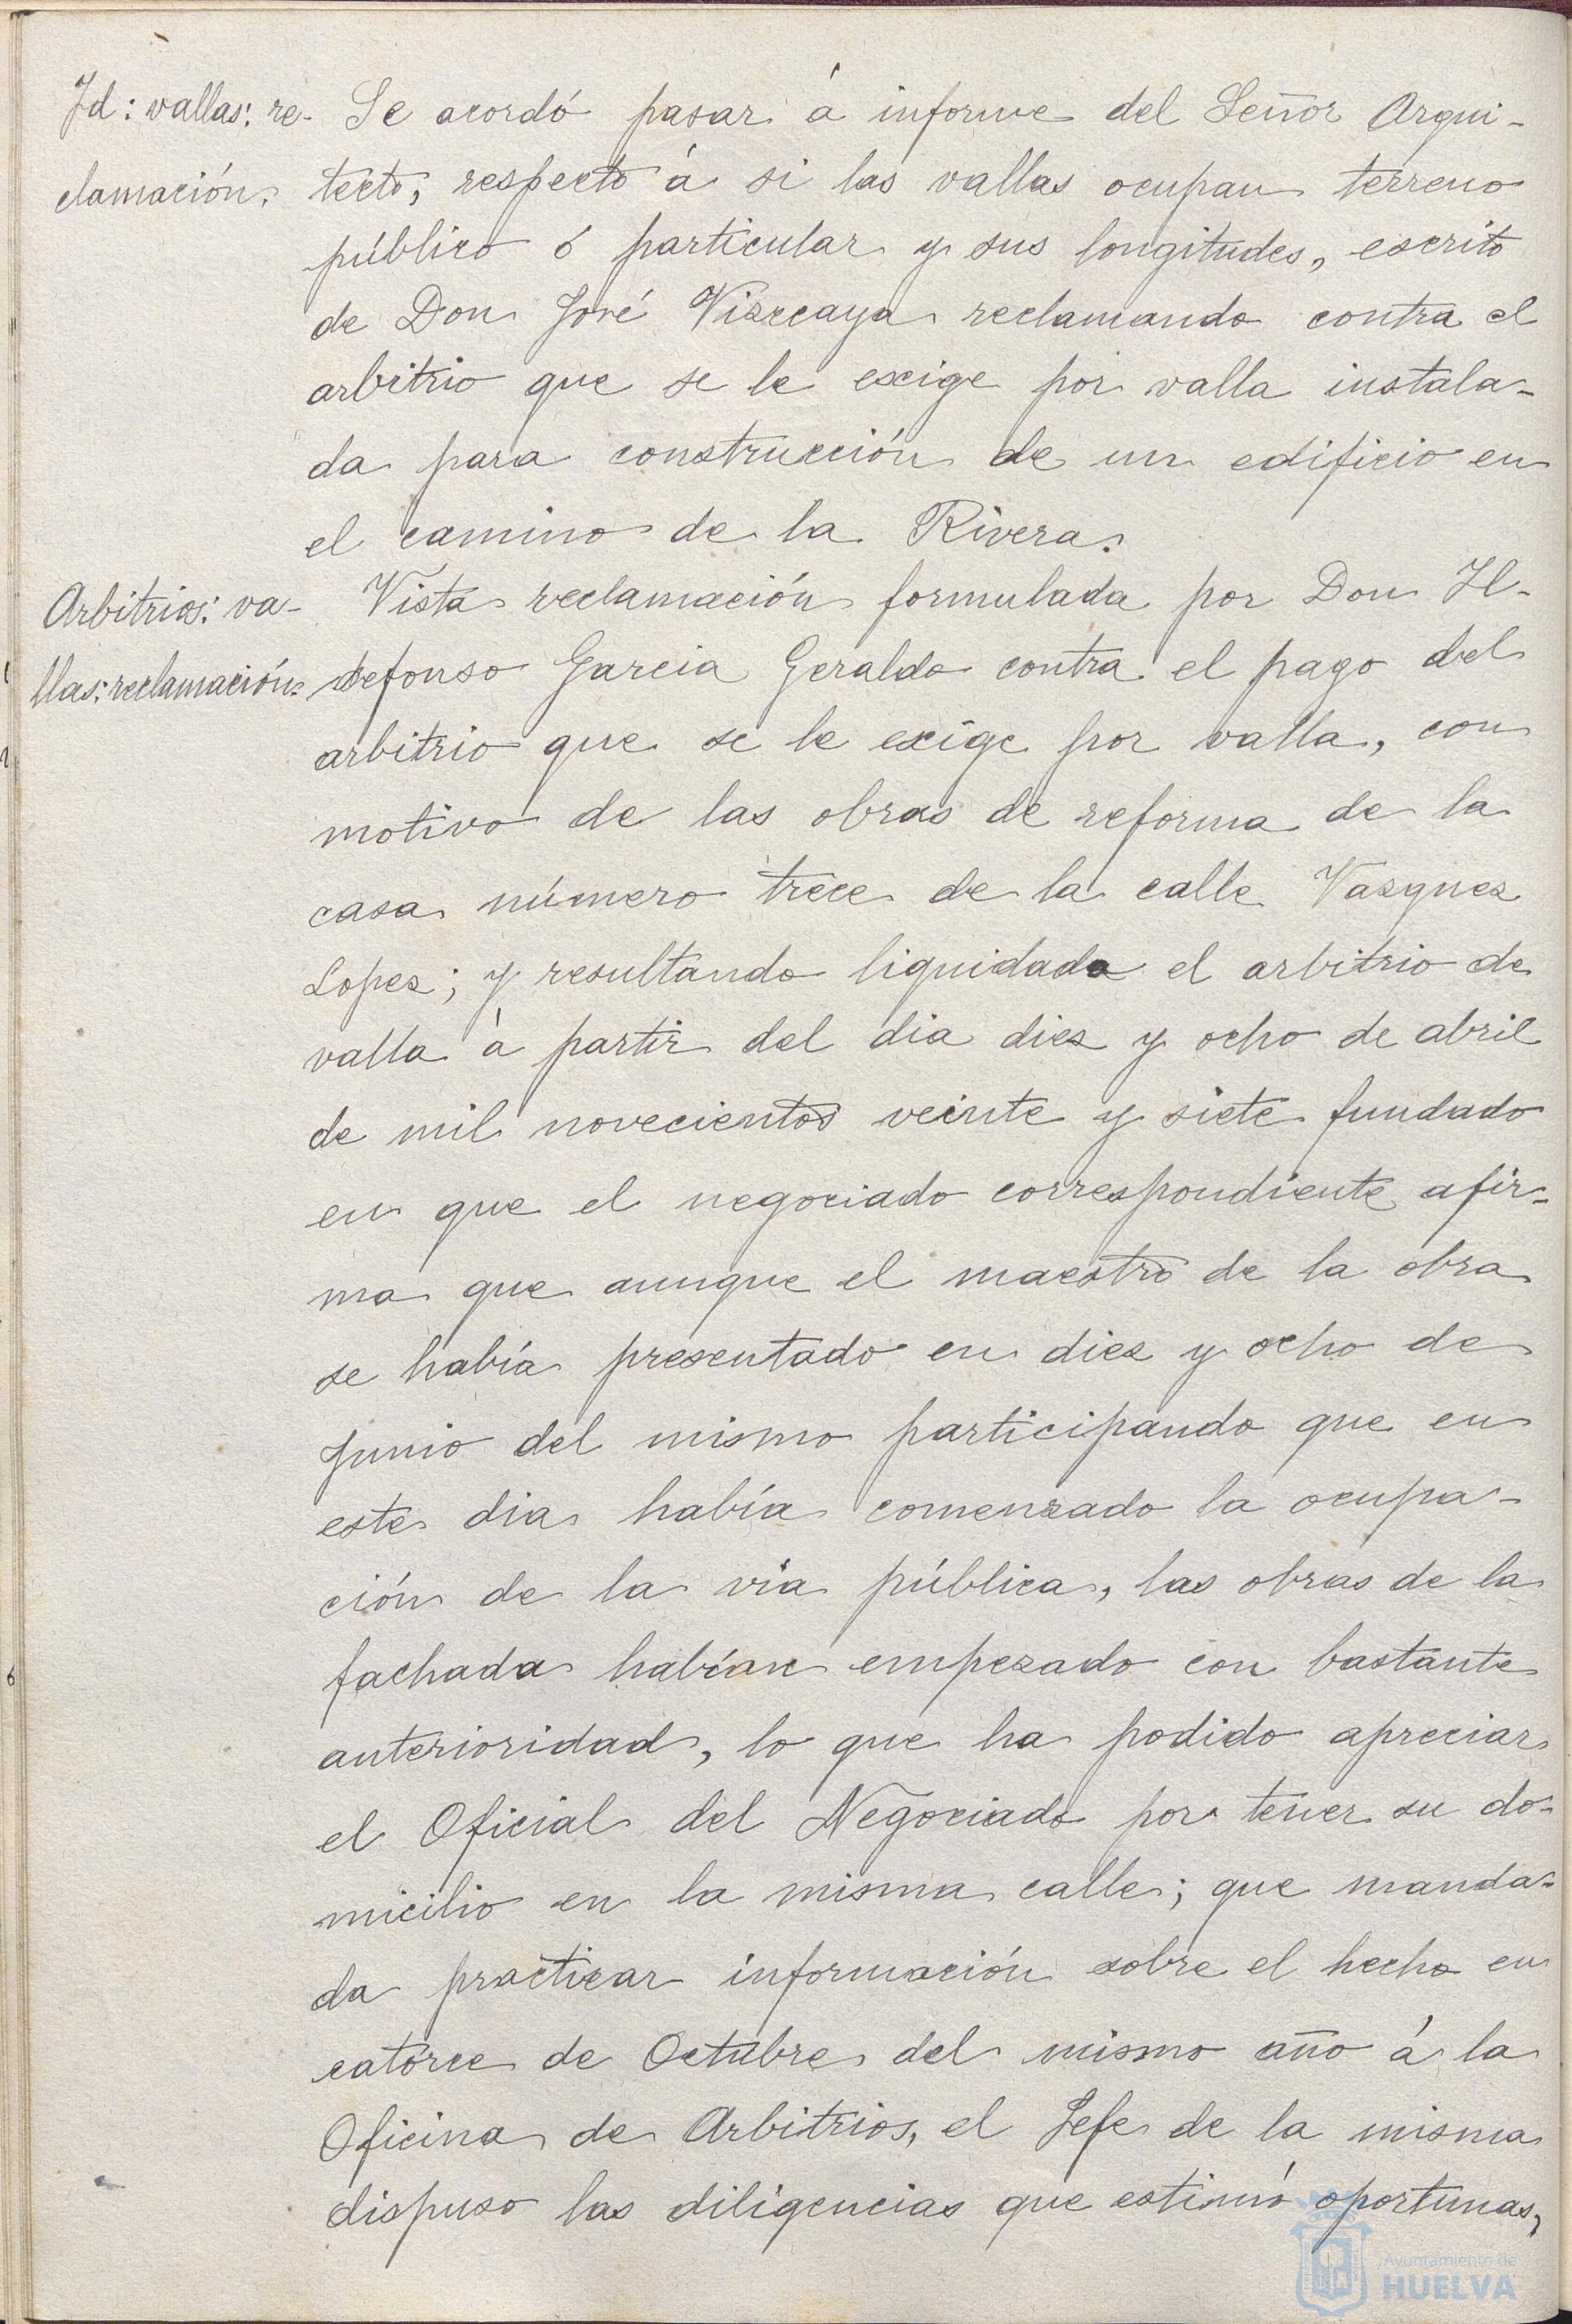 Id: vallas: re-
clamación.
Se acordó pasar á informe del Señor Arqui-
tecto, respecto á si las vallas ocupan terreno
público ó particular y sus longitudes, escrito
de Don José Vizccaya reclamando contra el
arbitrio que se le exige por valla instala-
da para construcción de un edificio en
el camino de la Rivera.
Arbitrios: va-
llas: reclamación.
Vista reclamación formulada por Don Il-
defonso Garcia Geraldo contra el pago del
arbitrio que se le exige por valla, con
motivo de las obras de reforma de la
casa número trece de la calle Vazquez
Lopez; y resultando liquidado el arbitrio de
valla á partir del dia diez y ocho de abril
de mil novecientos veinte y siete fundado
en que el negociado correspondiente afir-
ma que aunque el maestro de la obra
se había presentado en diez y ocho de
Junio del mismo participando que en
este dia había comenzado la ocupa-
ción de la vía pública, las obras de la
fachada habían empezado con bastante
anterioridad, lo que ha podido apreciar
el Oficial del Negociado por tener su do-
micilio en la misma calle; que manda-
da practicar información sobre el hecho en
catorce de Octubre del mismo año á la
Oficina de Arbitrios, el Jefe de la misma
dispuso las diligencias que estimó oportunas,
Ayuntamiento de
HUELVA